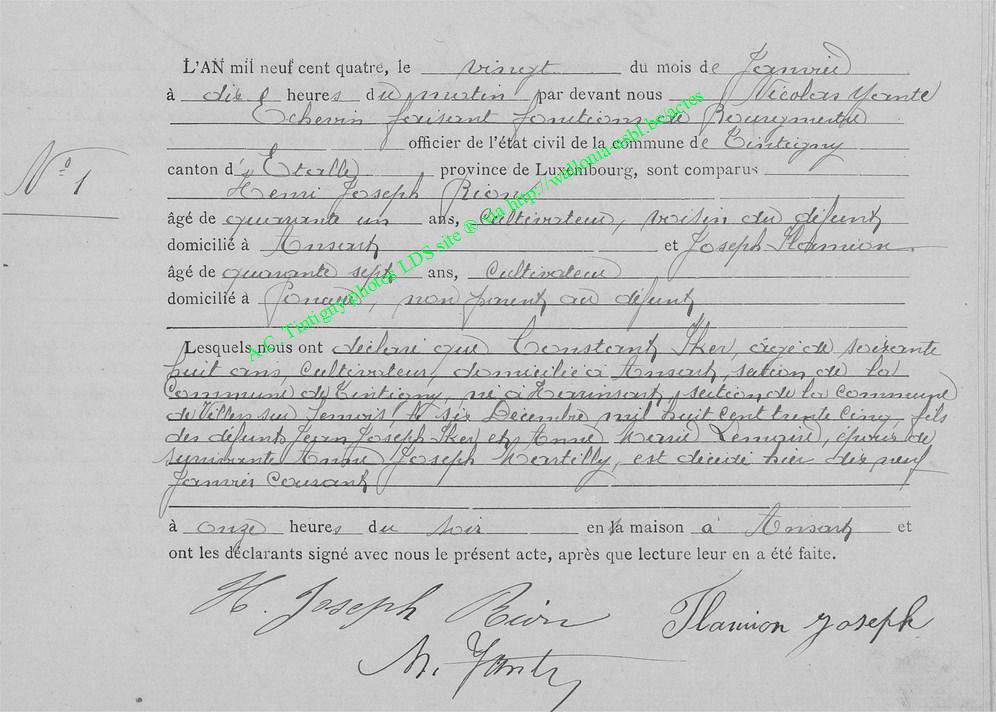 L'AN mil neuf cent quatre, le vingt du mois de Janvier
à dix heures du matin par devant nous Nicolas Yante
Echevin faisant fonctions de Bourgmestre
officier de l'état civil de la commune de Tintigny
N° 1
canton d' Etalle province de Luxembourg, sont comparus
Henri Joseph Rion
âgé de quarante un ans, Cultivateur, voisin du défunt
domicilié à Ansart et Joseph Flamion
âgé de quarante sept ans, Cultivateur
domicilié à non parent au défunt
Lesquels nous ont déclaré que Constant Sker, âgé de soixante
huit ans, Cultivateur, domicilié à Ansart, section de la
Commune de Tintigny, né à Harinsart, section de la commune
de Villers sur Semois, le six Décembre mil huit cent trente cinq, fils
des défunts Jean Joseph Sker et Anne Marie Lemaire, époux de
survivante Anne Joseph Martilly, est décédé hier dix neuf
Janvier Courant
à onze heures du soir en sa maison à Ansart et
ont les déclarants signé avec nous le présent acte, après que lecture leur en a été faite.
H. Joseph Rion Flamion Joseph
N. Yante
A.C. Tintigny photos LDS site ® via http://wallonia-asbl.be/actes